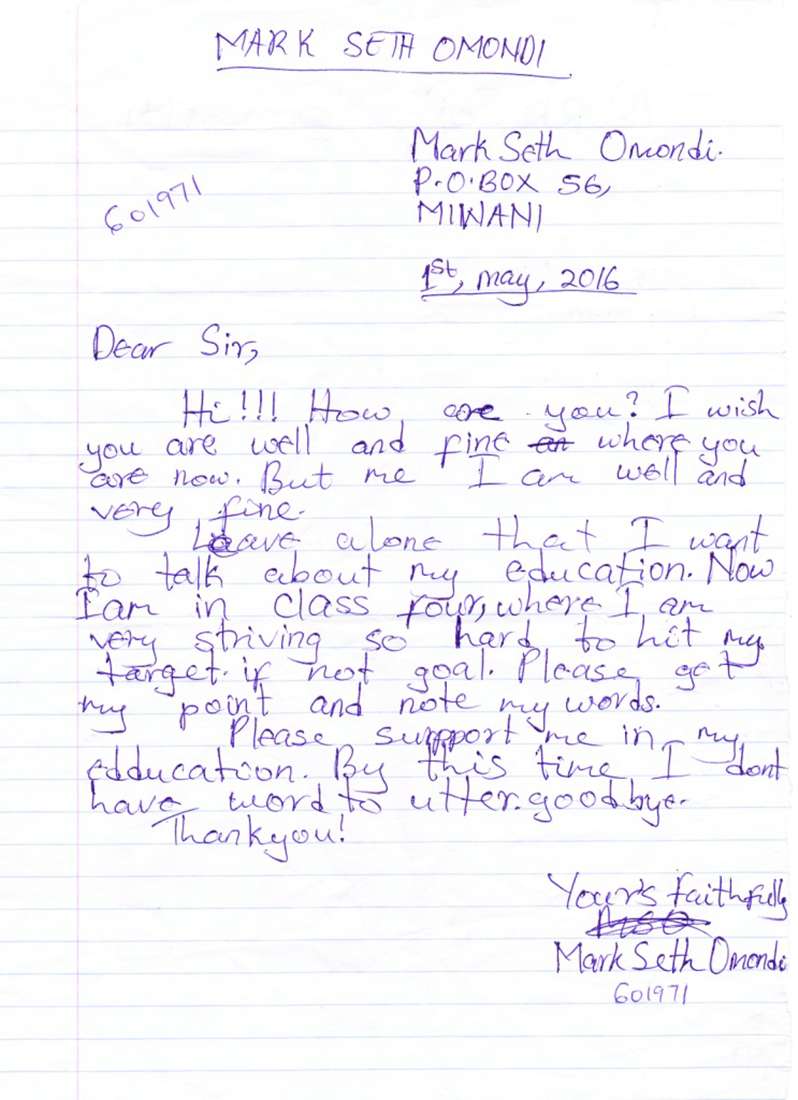 MARK SETH OMONDI
Mark Seth Omondi.
P.O.BOX 56,
MIWANI
601971
1st, may, 2016
Dear Sir,
Hi!!! How are you? I wish
you are well and fine an where you
are now. But me I am well and
very fine.
Leave alone that I want
to talk about my education. Now
I am in class four, where I am
very striving so hard to hit my
target. if not goal. Please get
my point and note my words.
Please suppport me in my
edducation. By this time I dont
have word to utter. goodbye.
Thankyou!
Your's faithfully
MSO
Mark Seth Omondi
601971